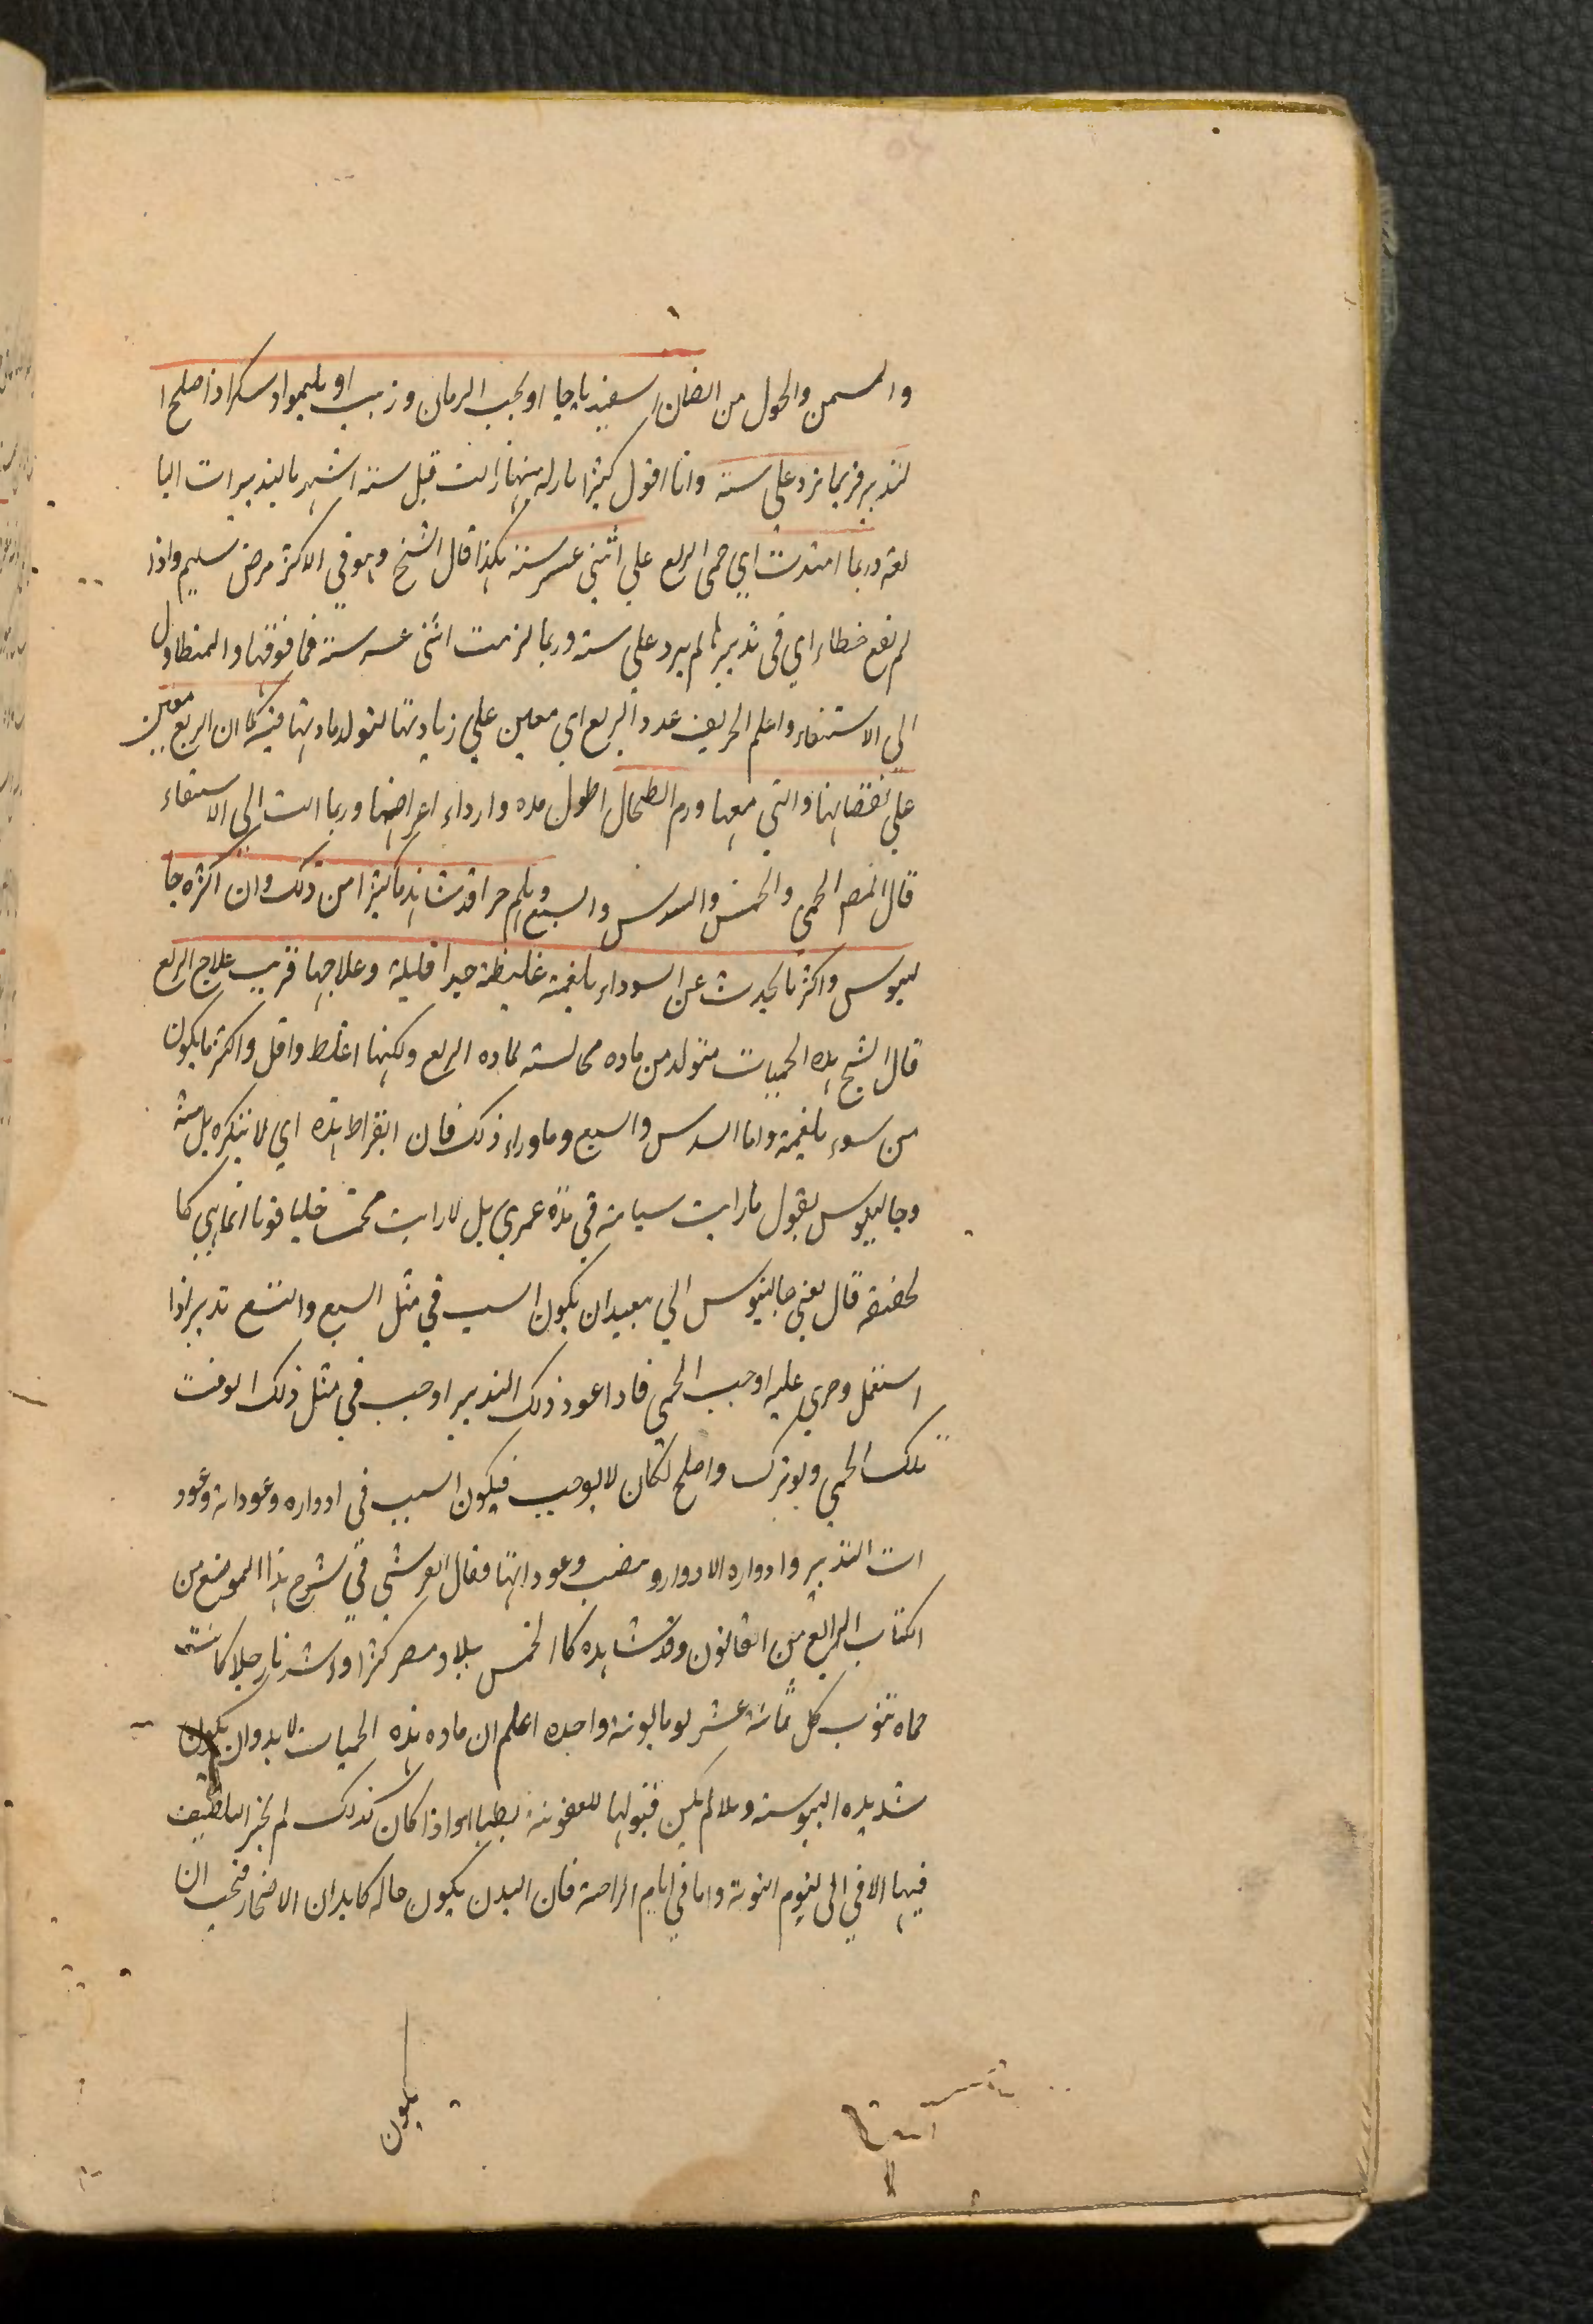 والسمن والحول من الضان اسفيدباجا او بحب الرمان وزبيب او بليمو او سكر اذا صلح ا
لتدبير فربما لم تزد على سنة وانا اقول كثيرا ما زالت قبل ستة اشهر بالتدبيرات البا
لغة وربما امتدت اي حمى الربع على اثنى عشر سنة هكذا قال الشيخ وهو في الاكثر مرض سليم واذا
لم يقع خطاء اي في تدبيرها لم يزد على سنة وربما لزمت اثنى عشر سنة فما فوقها والمتطاول
الى الاستسقاء واعلم الخريف عدو الربع اي معين على زيادتها لتولد مادتها فيه كما ان الربيع معين
على نقصانها والتي معها ورم الطحال اطول مدة وارداء اعراضها وربما الت الى الاستسقاء
قال المصـ الحمى والخمس والسدس والسبع وهلم جرا قد شاهدنا كثيرا من ذلك وان انكره جا
لينوس واكثر ما يحدث عن السوداء بلغمية غليظة جدا قليلة وعلاجها قريب علاج الربع
قال الشيخ هذه الحميات متولد من مادة مجانسة لمادة الربع ولكنها اغلظ واقل واكثر ما يكون
من سوداء بلغمية واما السدس والسبع وما وراء ذلك فان ابقراط يثبته اي لا ينكره بل يثبته
وجالينوس يقول ما رايت شيئا منه في مدة عمري بل لا رايت خمسا جليا قويا انما هي كما
لحفيفة قال يعني جالينوس الي بعيد ان يكون السبب في مثل السبع والتسع تدبير اذا
استعمل وجرى عليه اوجب الحمى فاذا عود ذلك التدبير اوجب في مثل ذلك الوقت
تلك الحمى ولو ترك واصلح لكان لا يوجب فيكون السبب في ادواره وعوداته وعود
ات التدبير وادواره لا ادوار و وعوداتها فقال القرشي في شرح هذا الموضع من
الكتاب الرابع من القانون وقد شاهدنا الخمس ببلاد مصر كثيرا وشاهدنا رجلا كانت
حماه تنوب كل ثمانية عشر يوما نوبة واحدة اعلم ان مادة هذه الحميات لا بد وان يكون
شديدة اليبوسة والا لم يكن قبولها للعفونة بطيا واذا كان كذلك لم يجز التلطيف
فيها الا في يوم النوبة واما في ايام الراحة فان البدن يكون حاله كابدان الاصحاء فيجب ان
يكون